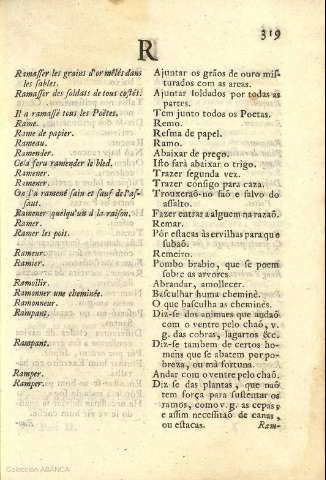 319
R
Ramasser les grains d'or mêlés dans Ajuntar os grãos de ouro mis-
les sables. turados com as areas.
Ramasser des soldats de tous costés. Ajuntar soldados por todas as
partes.
Il a ramassé tous les Poëtes. Tem junto todos os Poetas.
Rame. Remo.
Rame de papier. Resma de papel.
Rameau. Ramo.
Ramender. Abaixar de preço.
Cela fera ramender le bled. Isto fará abaixar o trigo.
Ramener. Trazer segunda vez.
Ramener. Trazer consigo para caza.
On l'a ramené sain et sauf de l'as- Trouxeraõ-no saõ e salvo do
saut. assalto.
Ramener quelqu'un à la raison. Fazer entrar a alguem na razaõ.
Ramer. Remar.
Ramer les pois. Pôr estacas às ervilhas para que
subaõ.
Rameur. Remeiro.
Ramier. Pombo brabio, que se poem
sobre as arvores.
Ramollir. Abrandar, amollecer.
Ramonner une cheminée. Basculhar huma cheminè.
Ramonneur. O que basculha as cheminés.
Rampant. Diz-se dos animaes que andaõ
com o ventre pelo chaõ, v.
g. das cobras, lagartos &c.
Rampant. Diz-se tambem de certos ho-
mens que se abatem por po-
breza, ou má fortuna.
Ramper. Andar com o ventre pelo chaõ.
Ramper. Diz se das plantas, que naõ
tem força para sustentar os
ramos, como v. g. as cepas,
e assim necessitaõ de canas,
ou estacas. Ram-
Colección ABANCA